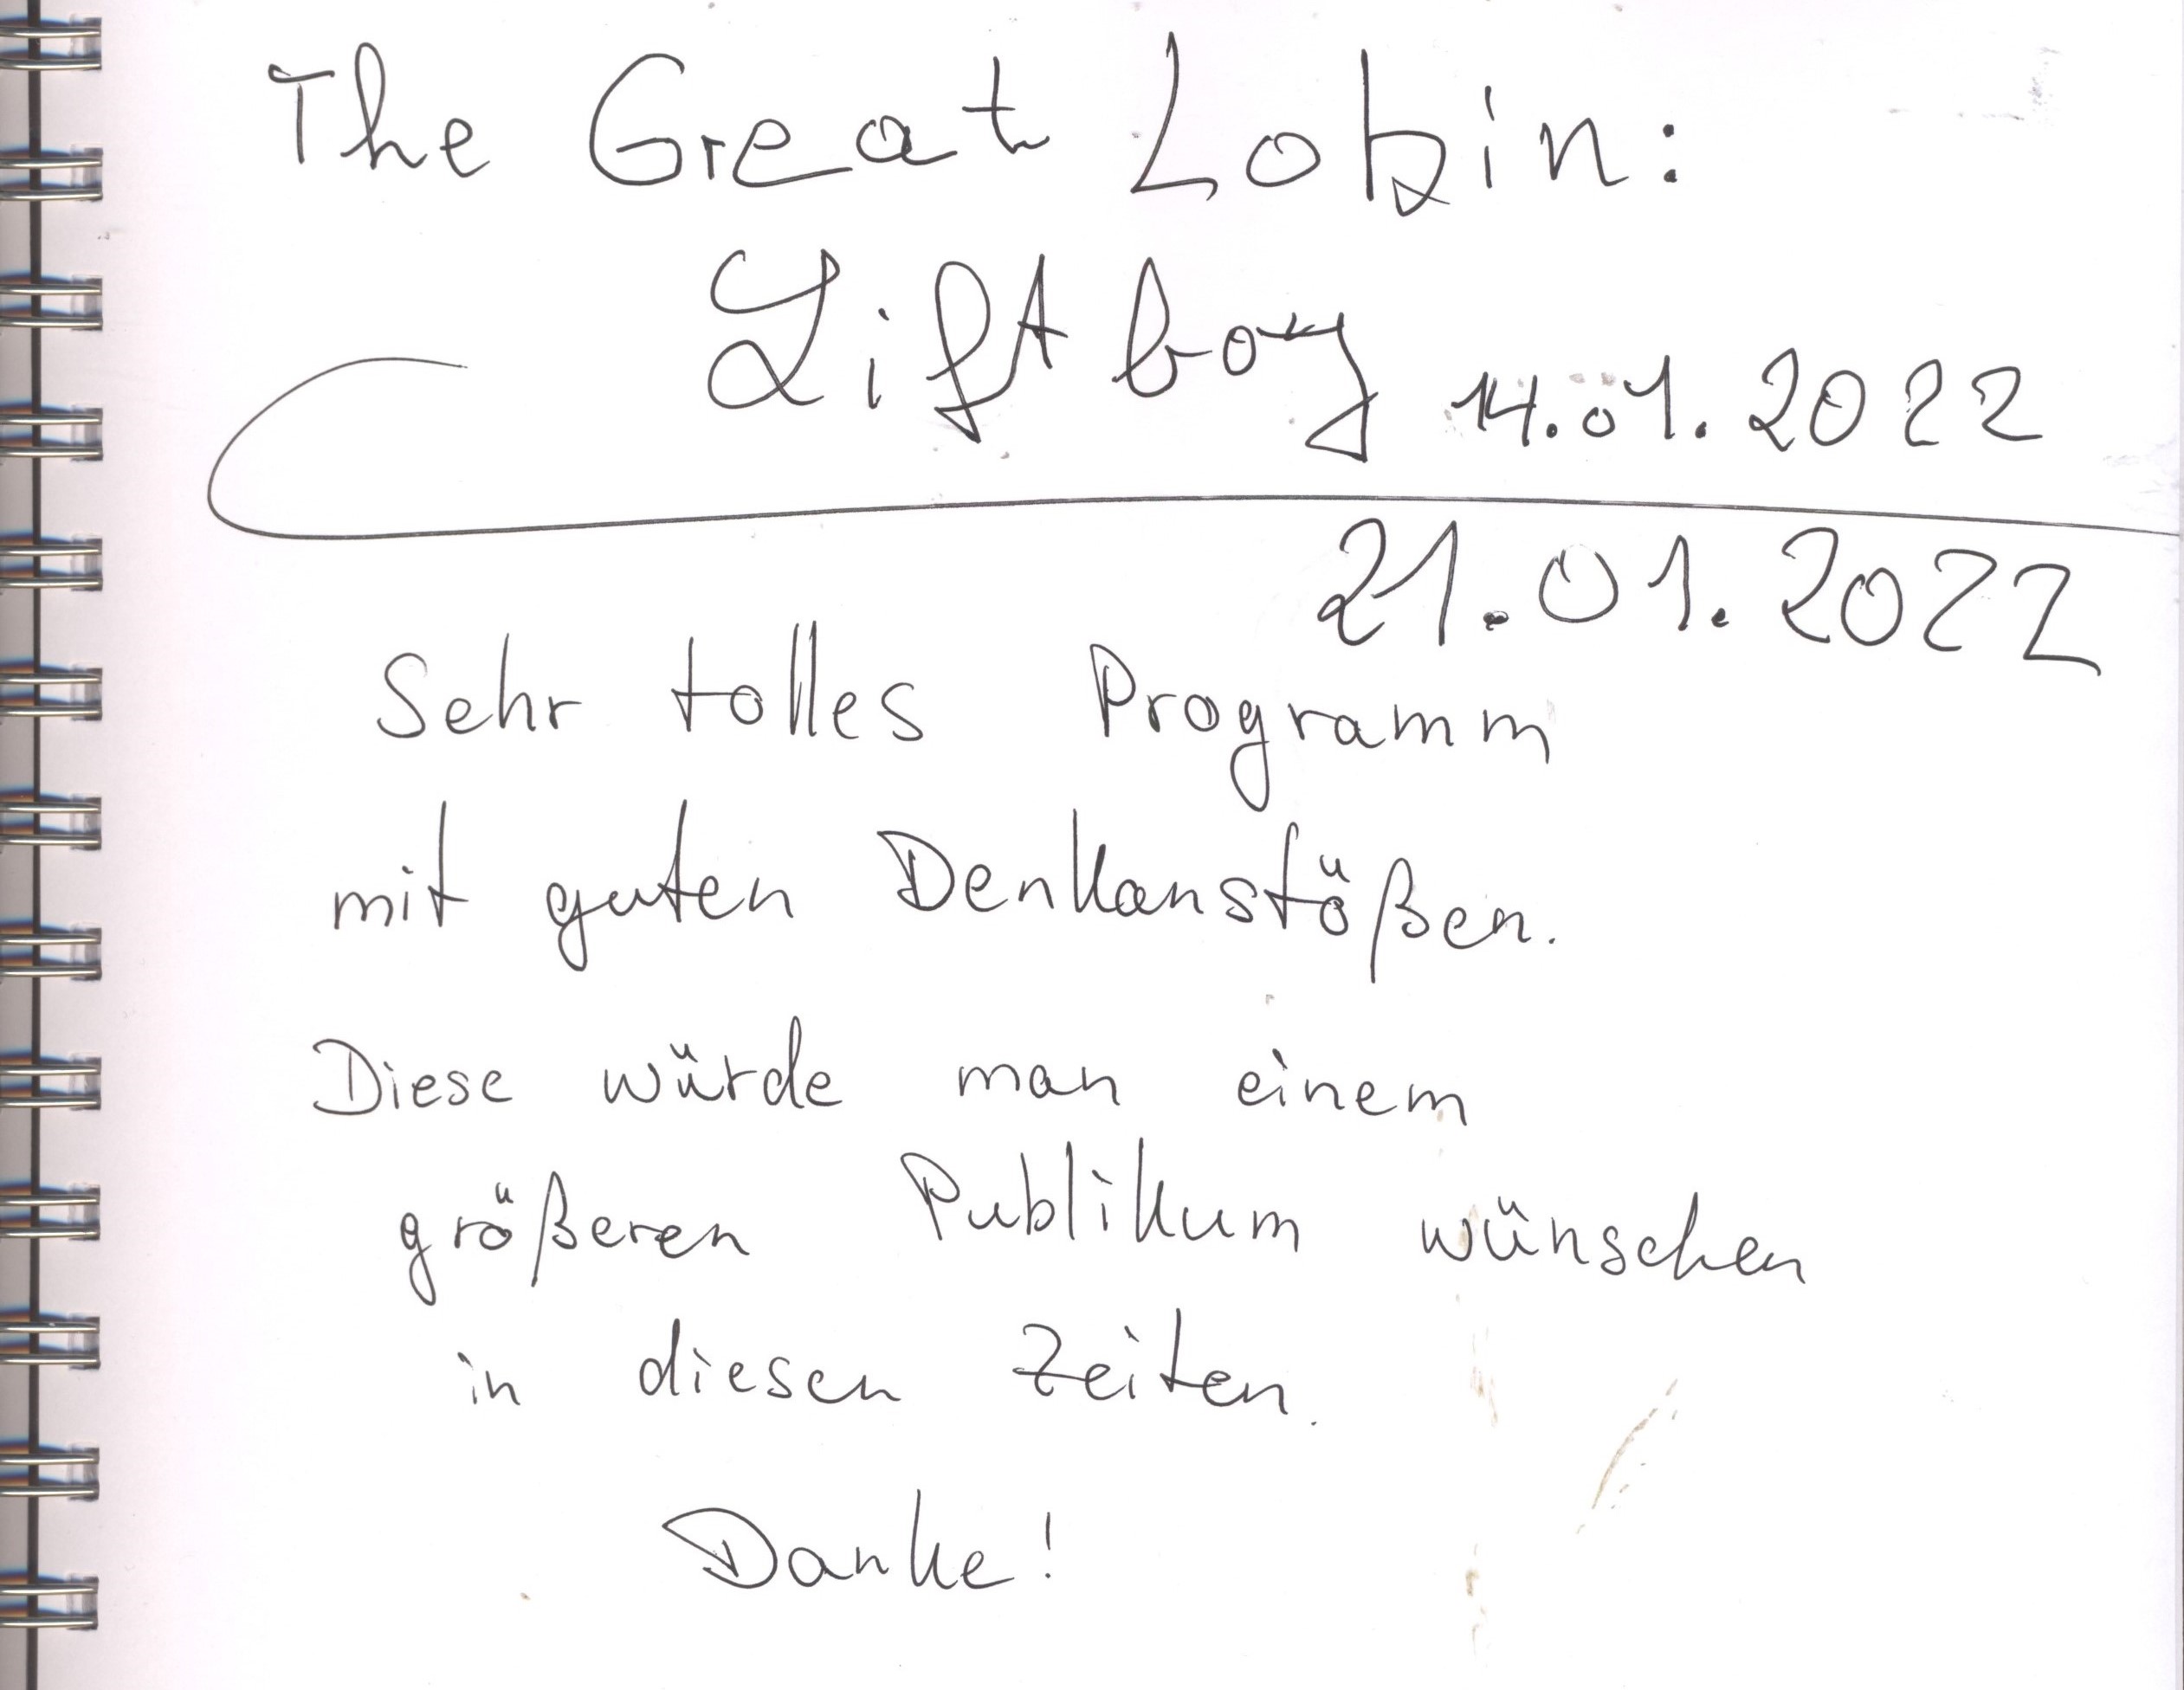 The Great Lobin:
Liftboy 14.01.2022
21.01.2022
Sehr tolles Programm
mit guten Denkanstößen.
Diese würde man einem
größeren Publikum wünschen
in diesen Zeiten.
Danke!